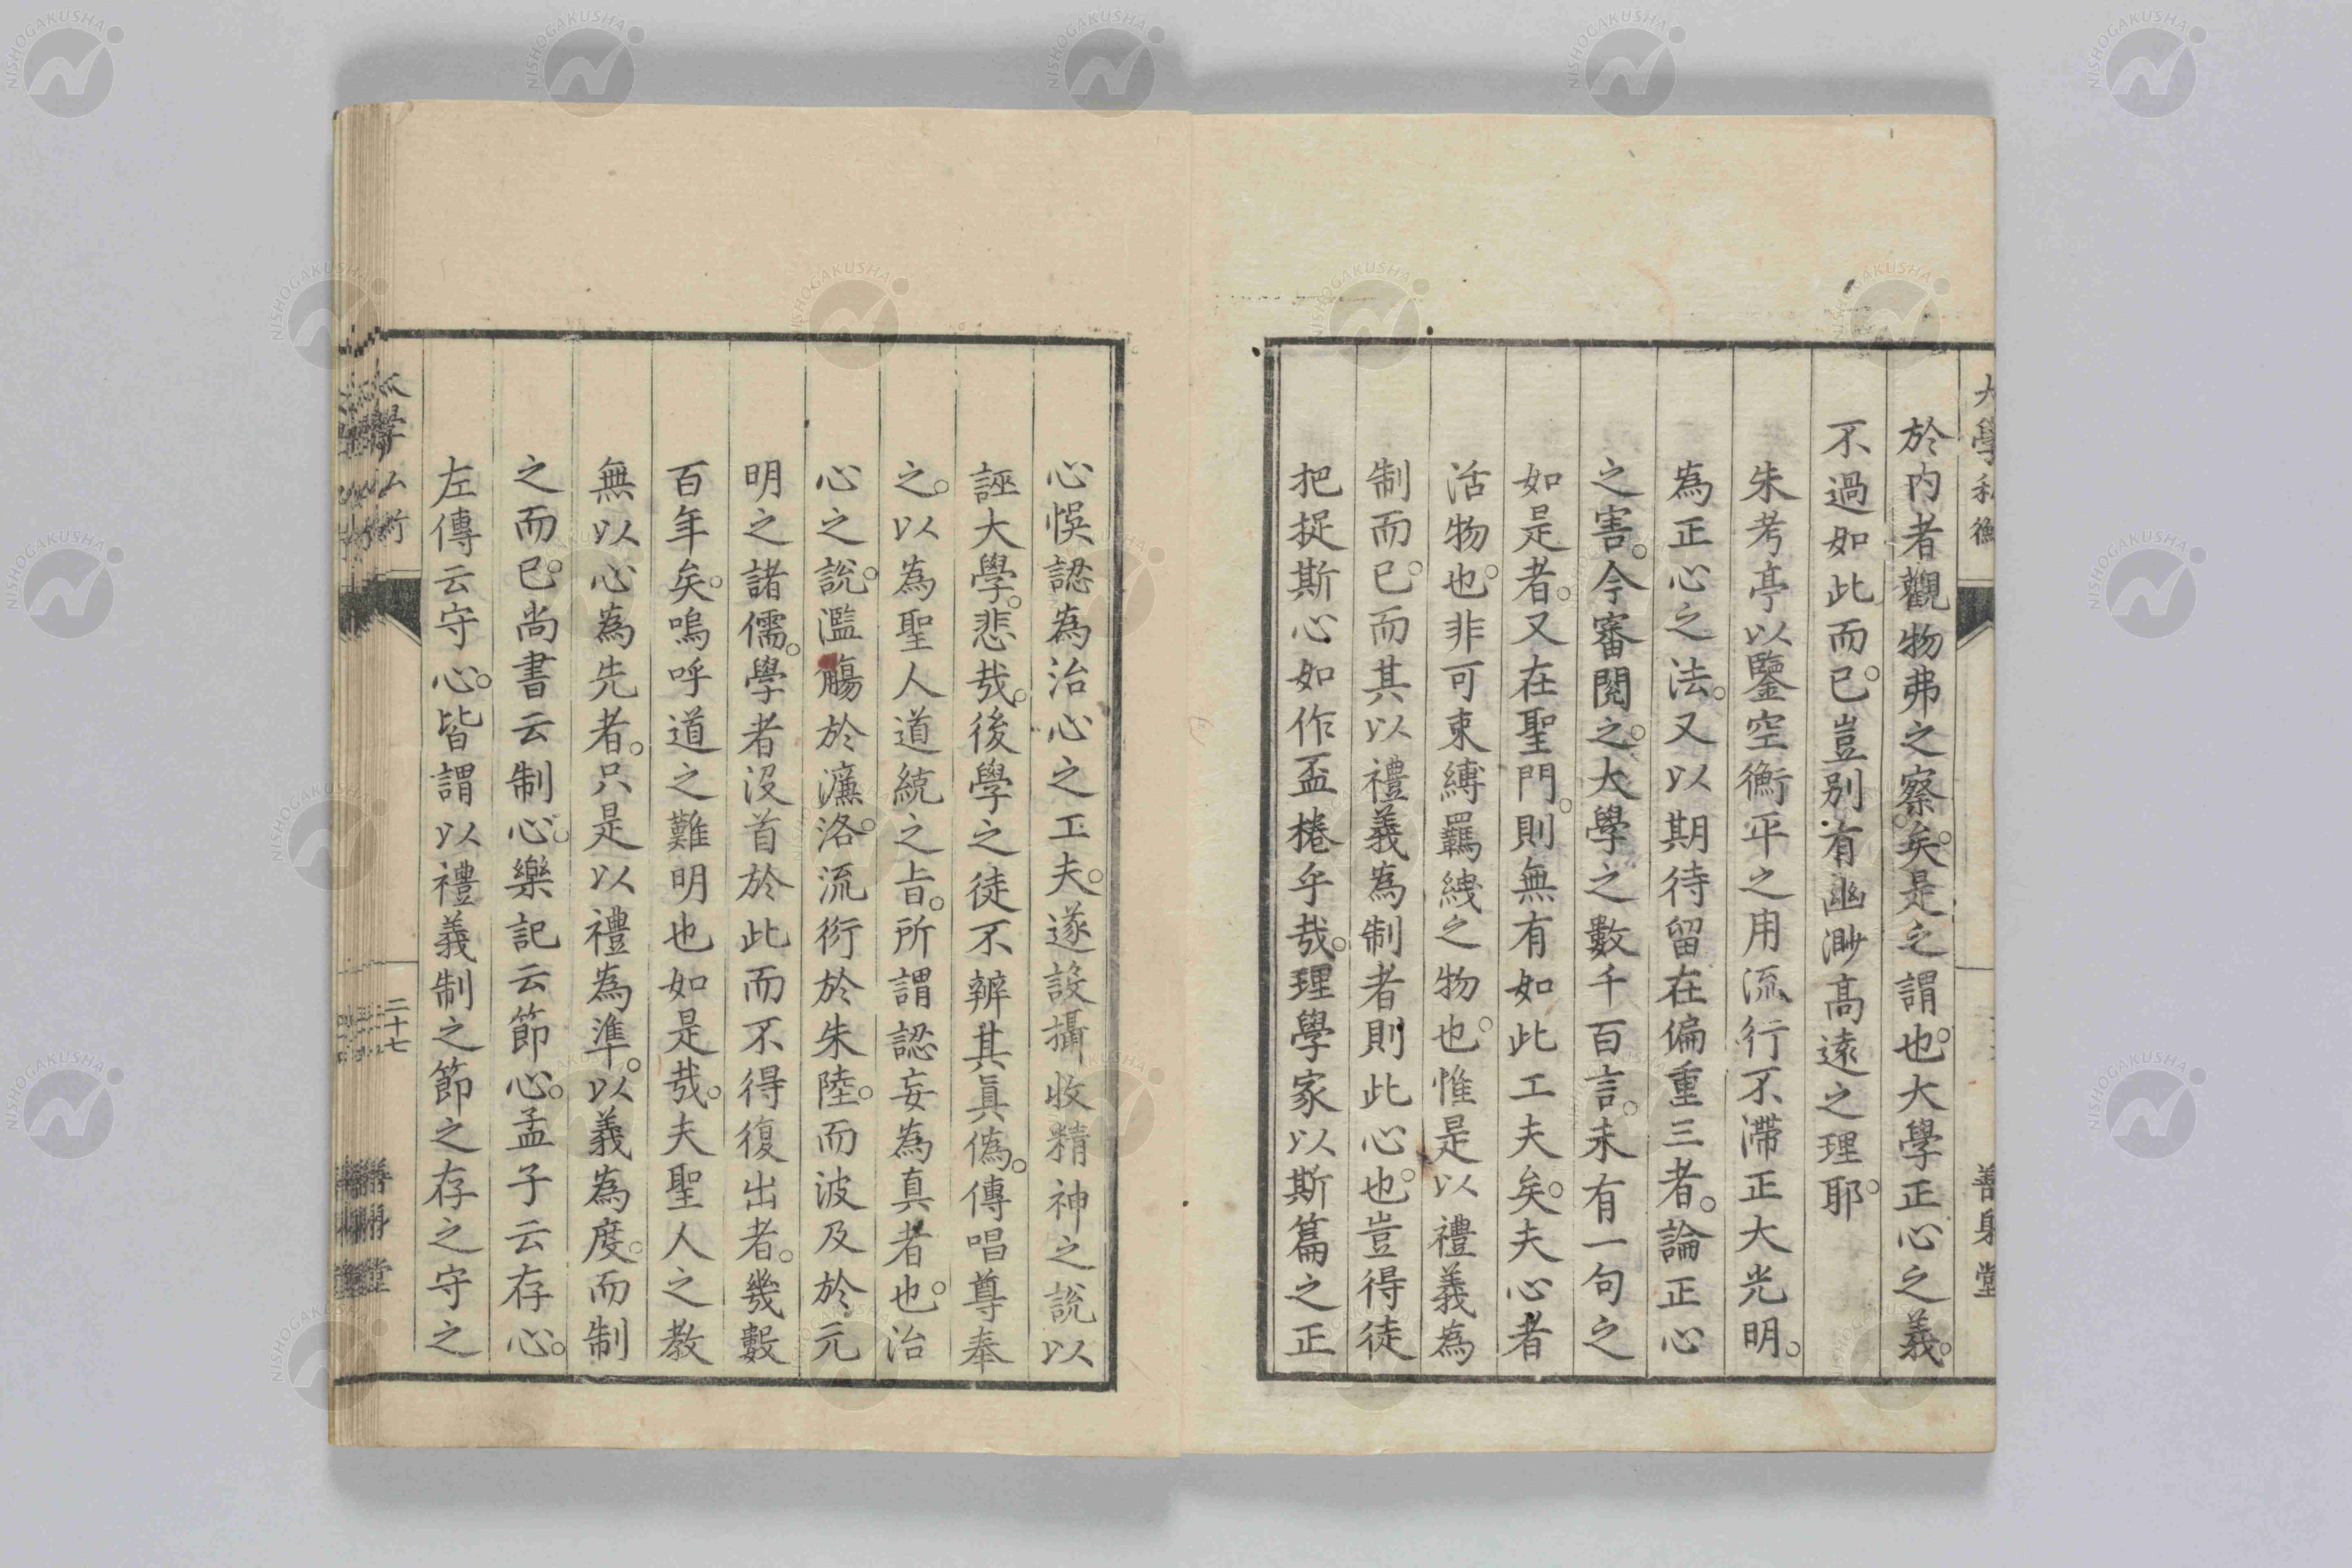 於内者觀物弗之察矣。是之謂也。大學正心之義。
不過如此而已。豈別有幽渺高遠之理耶。
朱考亭以鑒空衡平之用流行不滯正大光明。
為正心之法。又以期待留在偏重三者。論正心
之害。今審閱之。大學之數千百言。未有一句之
如是者。又在聖門。則無有如此工夫矣。夫心者
活物也。非可束縛羈絏之物也。惟是以禮義為
制而已。而其以禮義為制者則此心也。豈得徒
把捉斯心如作盃棬乎哉。理學家以斯篇之正
心悞認為治心之工夫。遂設攝收精神之說以
誣大學。悲哉。後學之徒不辨其眞僞。傳唱尊奉
之。以為聖人道統之旨。所謂認妄為真者也。治
心之說。濫觴於濂洛。流衍於朱陸。而波及於元
明之諸儒。學者沒首於此而不得復出者。幾數
百年矣。嗚呼道之難明也如是哉。夫聖人之教
無以心為先者。只是以禮為準。以義為度。而制
之而已。尚書云制心。樂記云節心。孟子云存心。
左傳云守心。皆謂以禮義制之節之存之守之
二十七
NISHOGAKUSHA